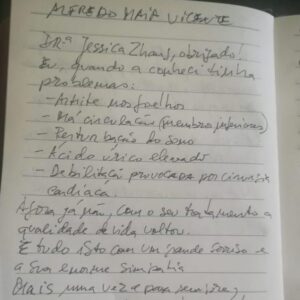 ALFREDO MAIA VICENTE
DR.ª Jessica Zhang, obrigado!
Eu, quando a conheci tinha
problemas:
- Artrite nos joelhos
- Má circulação (membros inferiores)
- Perturbação do sono
- Ácido úrico elevado
- Debilitação provocada por cirurgia
cardíaca.
Agora já não, com o seu tratamento a
qualidade de vida voltou.
E tudo isto com um grande sorriso e
a sua enorme simpatia
Mais uma vez e para sempre,